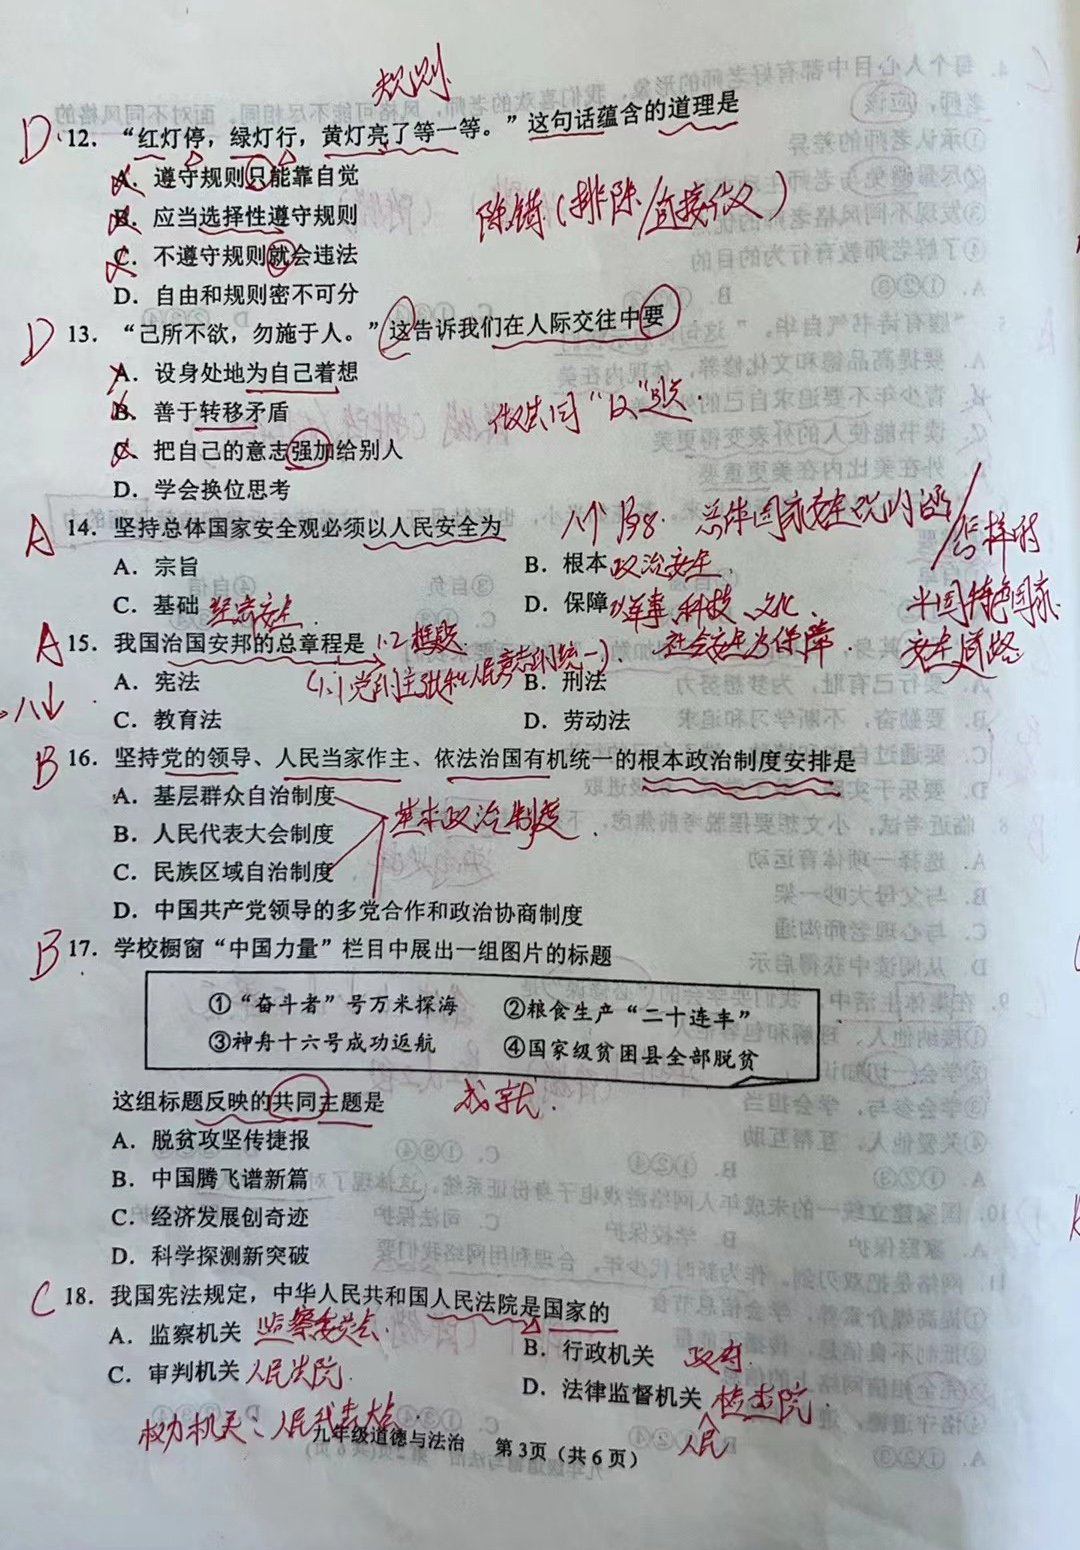 规则
D 12. “红灯停，绿灯行，黄灯亮了等一等。”这句话蕴含的道理是
A. 遵守规则只能靠自觉
B. 应当选择性遵守规则
除错(排除/直接作义)
C. 不遵守规则就会违法
D. 自由和规则密不可分
D 13. “己所不欲，勿施于人。”这告诉我们在人际交往中要
A. 设身处地为自己着想
B. 善于转移矛盾
C. 把自己的意志强加给别人
D. 学会换位思考
A 14. 坚持总体国家安全观必须以人民安全为
总体国家安全观内涵/怎样时
A. 宗旨 B. 根本 政治安全
C. 基础 经济安全 D. 保障 以军事、科技、文化、
社会安全为保障
中国特色国家
安全道路
A 15. 我国治国安邦的总章程是
A. 宪法 B. 刑法
C. 教育法 D. 劳动法
B 16. 坚持党的领导、人民当家作主、依法治国有机统一的根本政治制度安排是
A. 基层群众自治制度
基本政治制度.
B. 人民代表大会制度
C. 民族区域自治制度
D. 中国共产党领导的多党合作和政治协商制度
B 17. 学校橱窗“中国力量”栏目中展出一组图片的标题
①“奋斗者”号万米探海 ②粮食生产“二十连丰”
③神舟十六号成功返航 ④国家级贫困县全部脱贫
这组标题反映的共同主题是 成就.
A. 脱贫攻坚传捷报
B. 中国腾飞谱新篇
C. 经济发展创奇迹
D. 科学探测新突破
C 18. 我国宪法规定，中华人民共和国人民法院是国家的
A. 监察机关 监察委员会. B. 行政机关 政府.
C. 审判机关 人民法院. D. 法律监督机关 检查院.
人民
权力机关：人民代表大会.
九年级道德与法治 第3页（共6页）